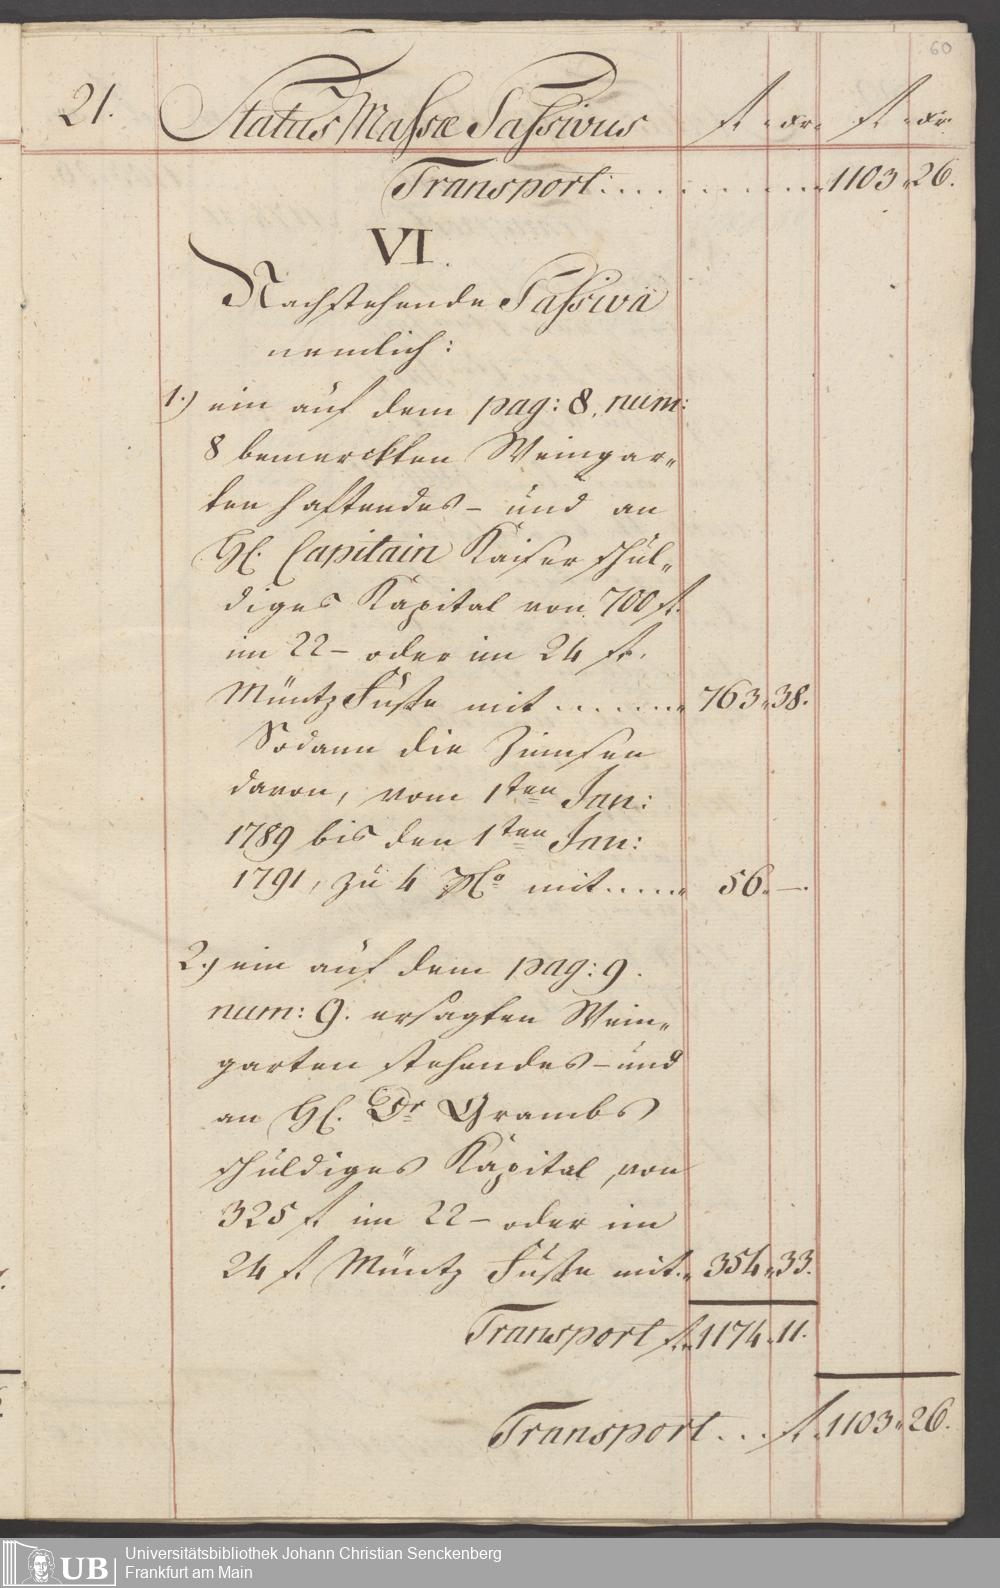 60
21. Status Massæ Passivus fl. xr. fl. xr.
Transport: . . . . . . . . . . 1103 " 26.
VI.
Nachstehende Passiva
nemlich:
1.) ein auf dem pag: 8. num:
8 bemerckten Weingar„
ten haftendes – und an
H. Capitain Kaiser schul„
diges Kapital von 700 fl.
im 22 – oder im 24 fl.
Müntz Fuße mit . . . . . . . " 763 " 38.
Sodann die Zinnsen
davon, vom 1ten Jan:
1789 bis den 1ten Jan:
1791, zu 4 pCo mit . . . . . " 56. —.
2.) ein auf dem pag: 9.
num: 9. ersagten Wein„
garten stehendes – und
an H. Dr Grambs
schuldiges Kapital, von
325 fl im 22 – oder im
24 fl. Müntz Fuße mit . " 354 " 33.
Transport fl. 1174 " 11.
Transport . . . fl. 1103 " 26.
UB
Universitätsbibliothek Johann Christian Senckenberg
Frankfurt am Main